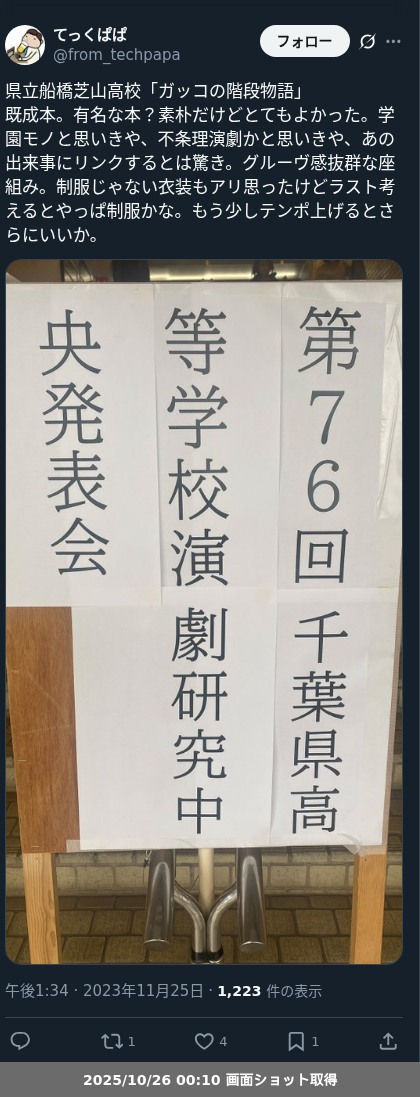 てっくぱぱ
@from_techpapa
フォロー
県立船橋芝山高校「ガッコの階段物語」
既成本。有名な本？素朴だけどとてもよかった。学
園モノと思いきや、不条理演劇かと思いきや、あの
出来事にリンクするとは驚き。グルーヴ感抜群な座
組み。制服じゃない衣装もアリ思ったけどラスト考
えるとやっぱ制服かな。もう少しテンポ上げるとさ
らにいいか。
第76回千葉県高
等学校演劇研究中
央発表会
午後1:34 · 2023年11月25日 · 1,223 件の表示
1
4
1
2025/10/26 00:10 画面ショット取得